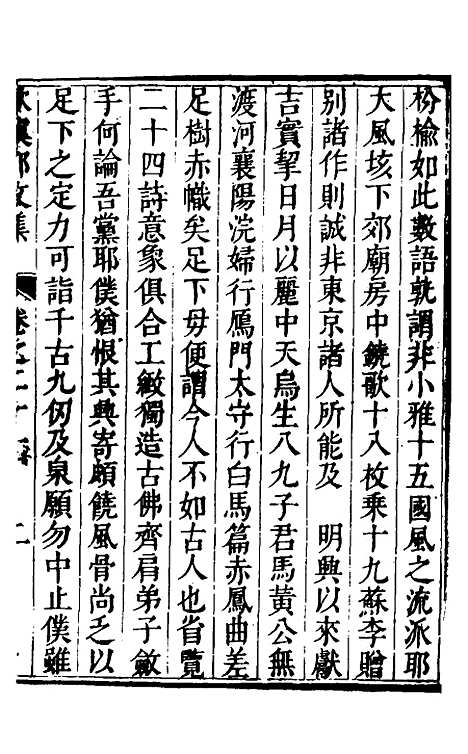 枌榆如此數語孰謂非小雅十五國風之流派耶
大風垓下郊廟房中鐃歌十八枚乘十九蘇李贈
別諸作則誠非東京諸人所能及　明興以來獻
吉實挈日月以麗中天烏生八九子君馬黃公無
渡河襄陽浣婦行鴈門太守行白馬篇赤鳳曲差
足樹赤幟矣足下毋便謂今人不如古人也省覽
二十四詩意象俱合工緻獨造古佛齊肩弟子斂
手何論吾黨耶僕猶恨其興寄頗饒風骨尚乏以
足下之定力可詣千古九仞及泉願勿中止僕雖
卷之二十
二